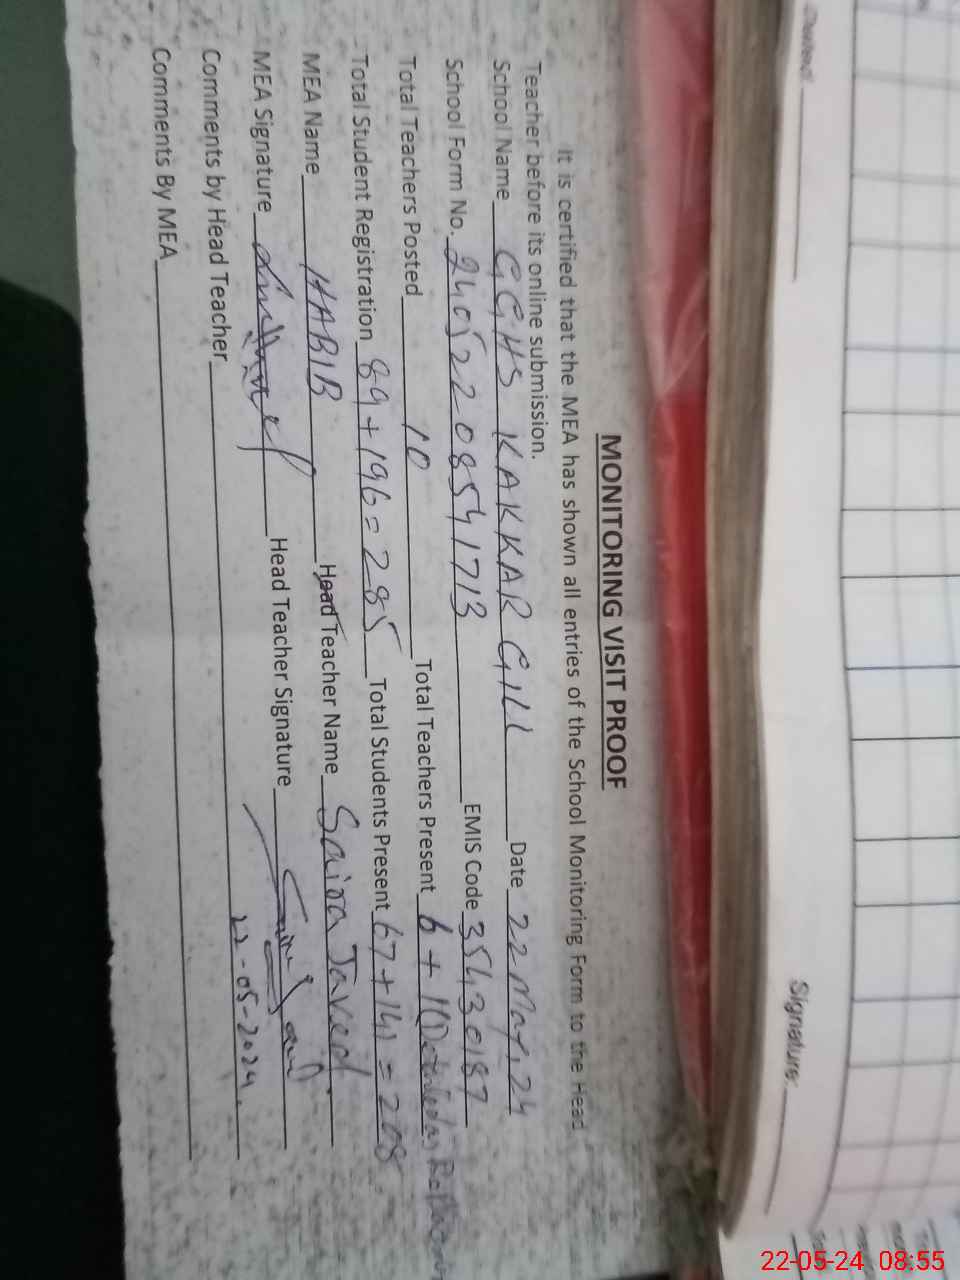 Dated:
Signature:
MONITORING VISIT PROOF
It is certified that the MEA has shown all entries of the School Monitoring Form to the Head
Teacher before its online submission.
School Name GGHS KAKKAR GILL Date 22 May, 24
School Form No. 24052208541713 EMIS Code 35430187
Total Teachers Posted 10 Total Teachers Present 6 + 1(
Total Student Registration 89 + 196 = 285 Total Students Present 67 + 141 = 208
MEA Name HABIB Head Teacher Name Saira Javed
MEA Signature Head Teacher Signature
Comments by Head Teacher 22-05-2024
Comments By MEA
22-05-24 08:55